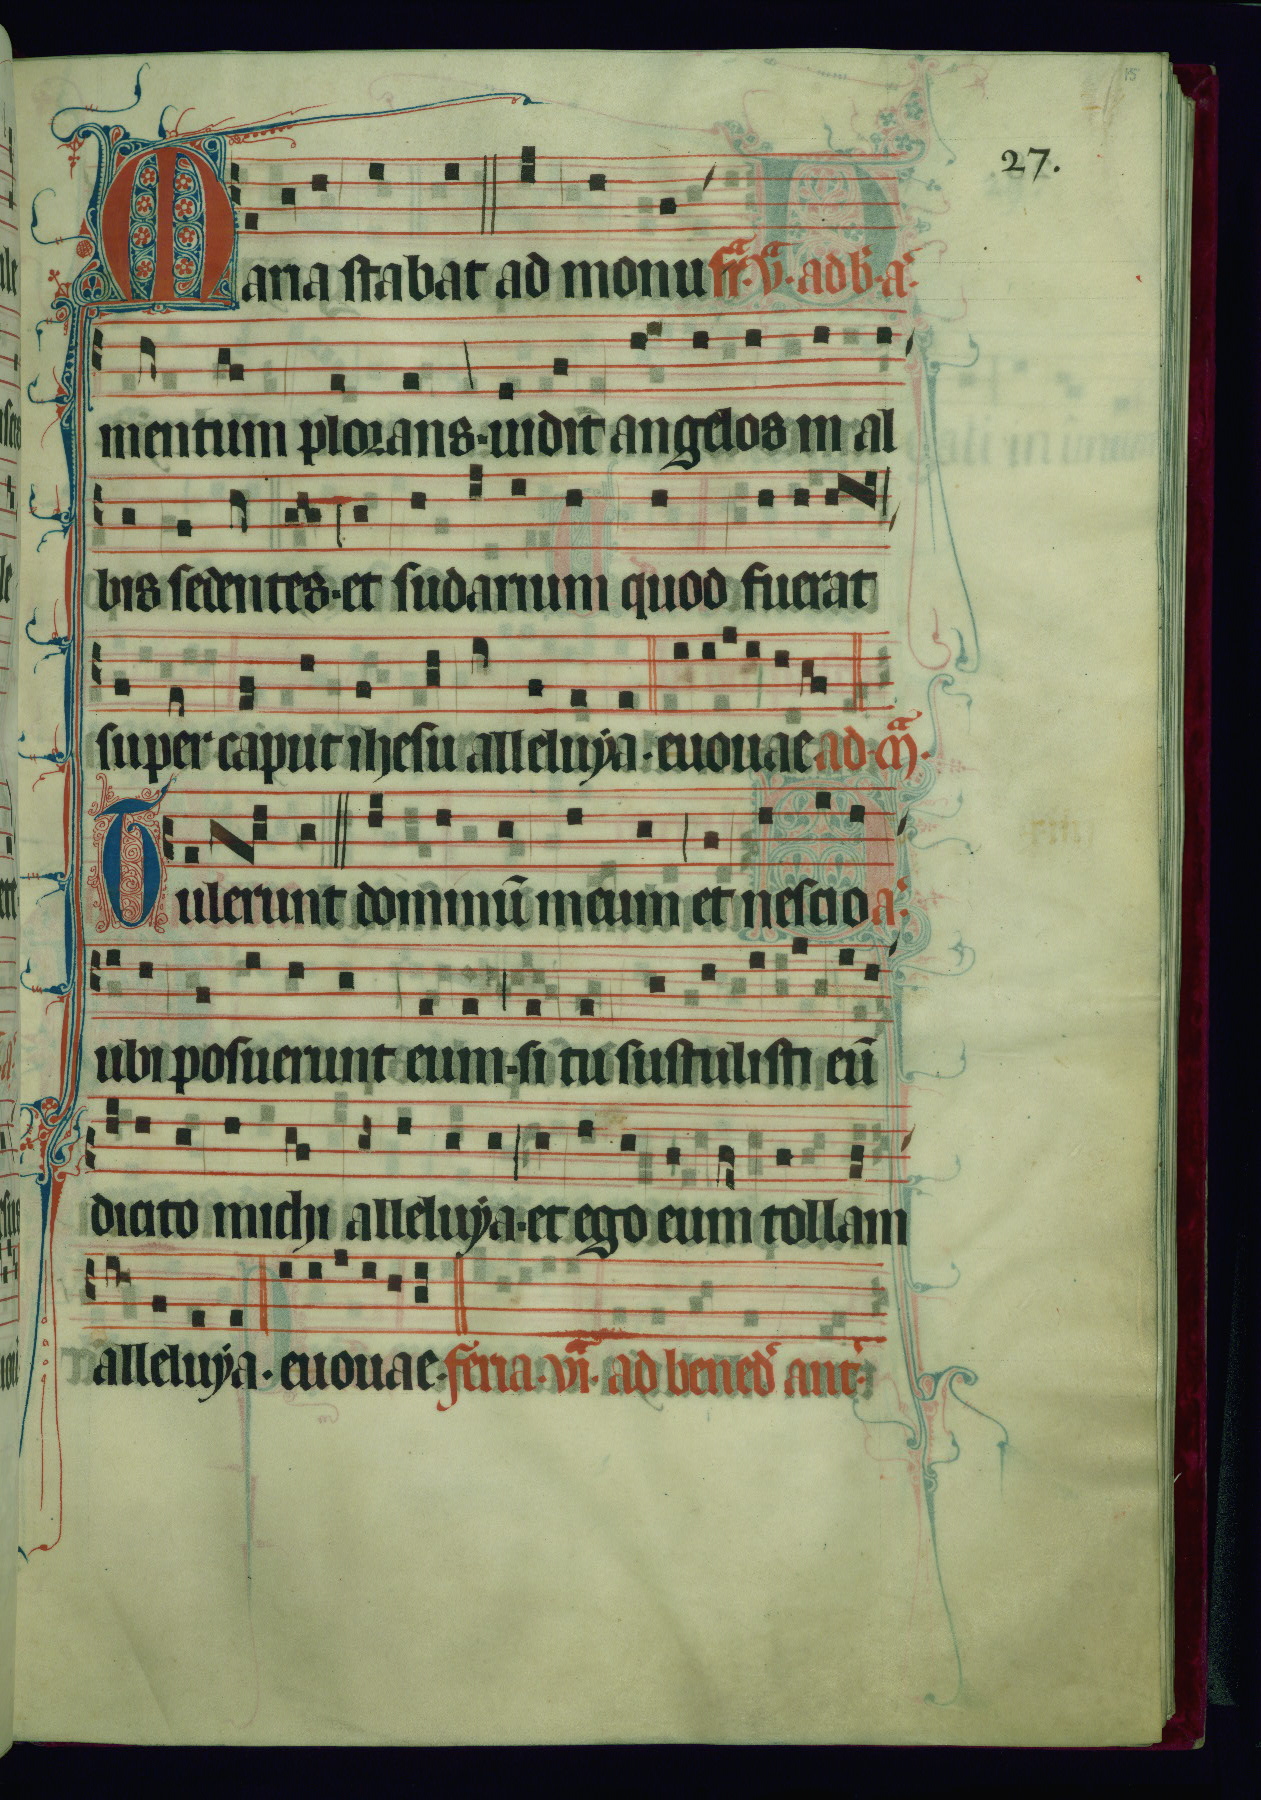 15
27.
Maria stabat ad monu fr̄. v̄. ad b̄. a̅.
mentum plorans. uidit angelos in al
bis sedentes. et sudarium quod fuerat
super caput ihesu alleluÿa. euouae ad m̄.
Tulerunt dominū meum et nescio a̅.
ubi posuerunt eum. si tu sustulisti eū
dicito michi alleluÿa. et ego eum tollam
alleluÿa. euouae. feria. vī. ad bened̄ ant̄.